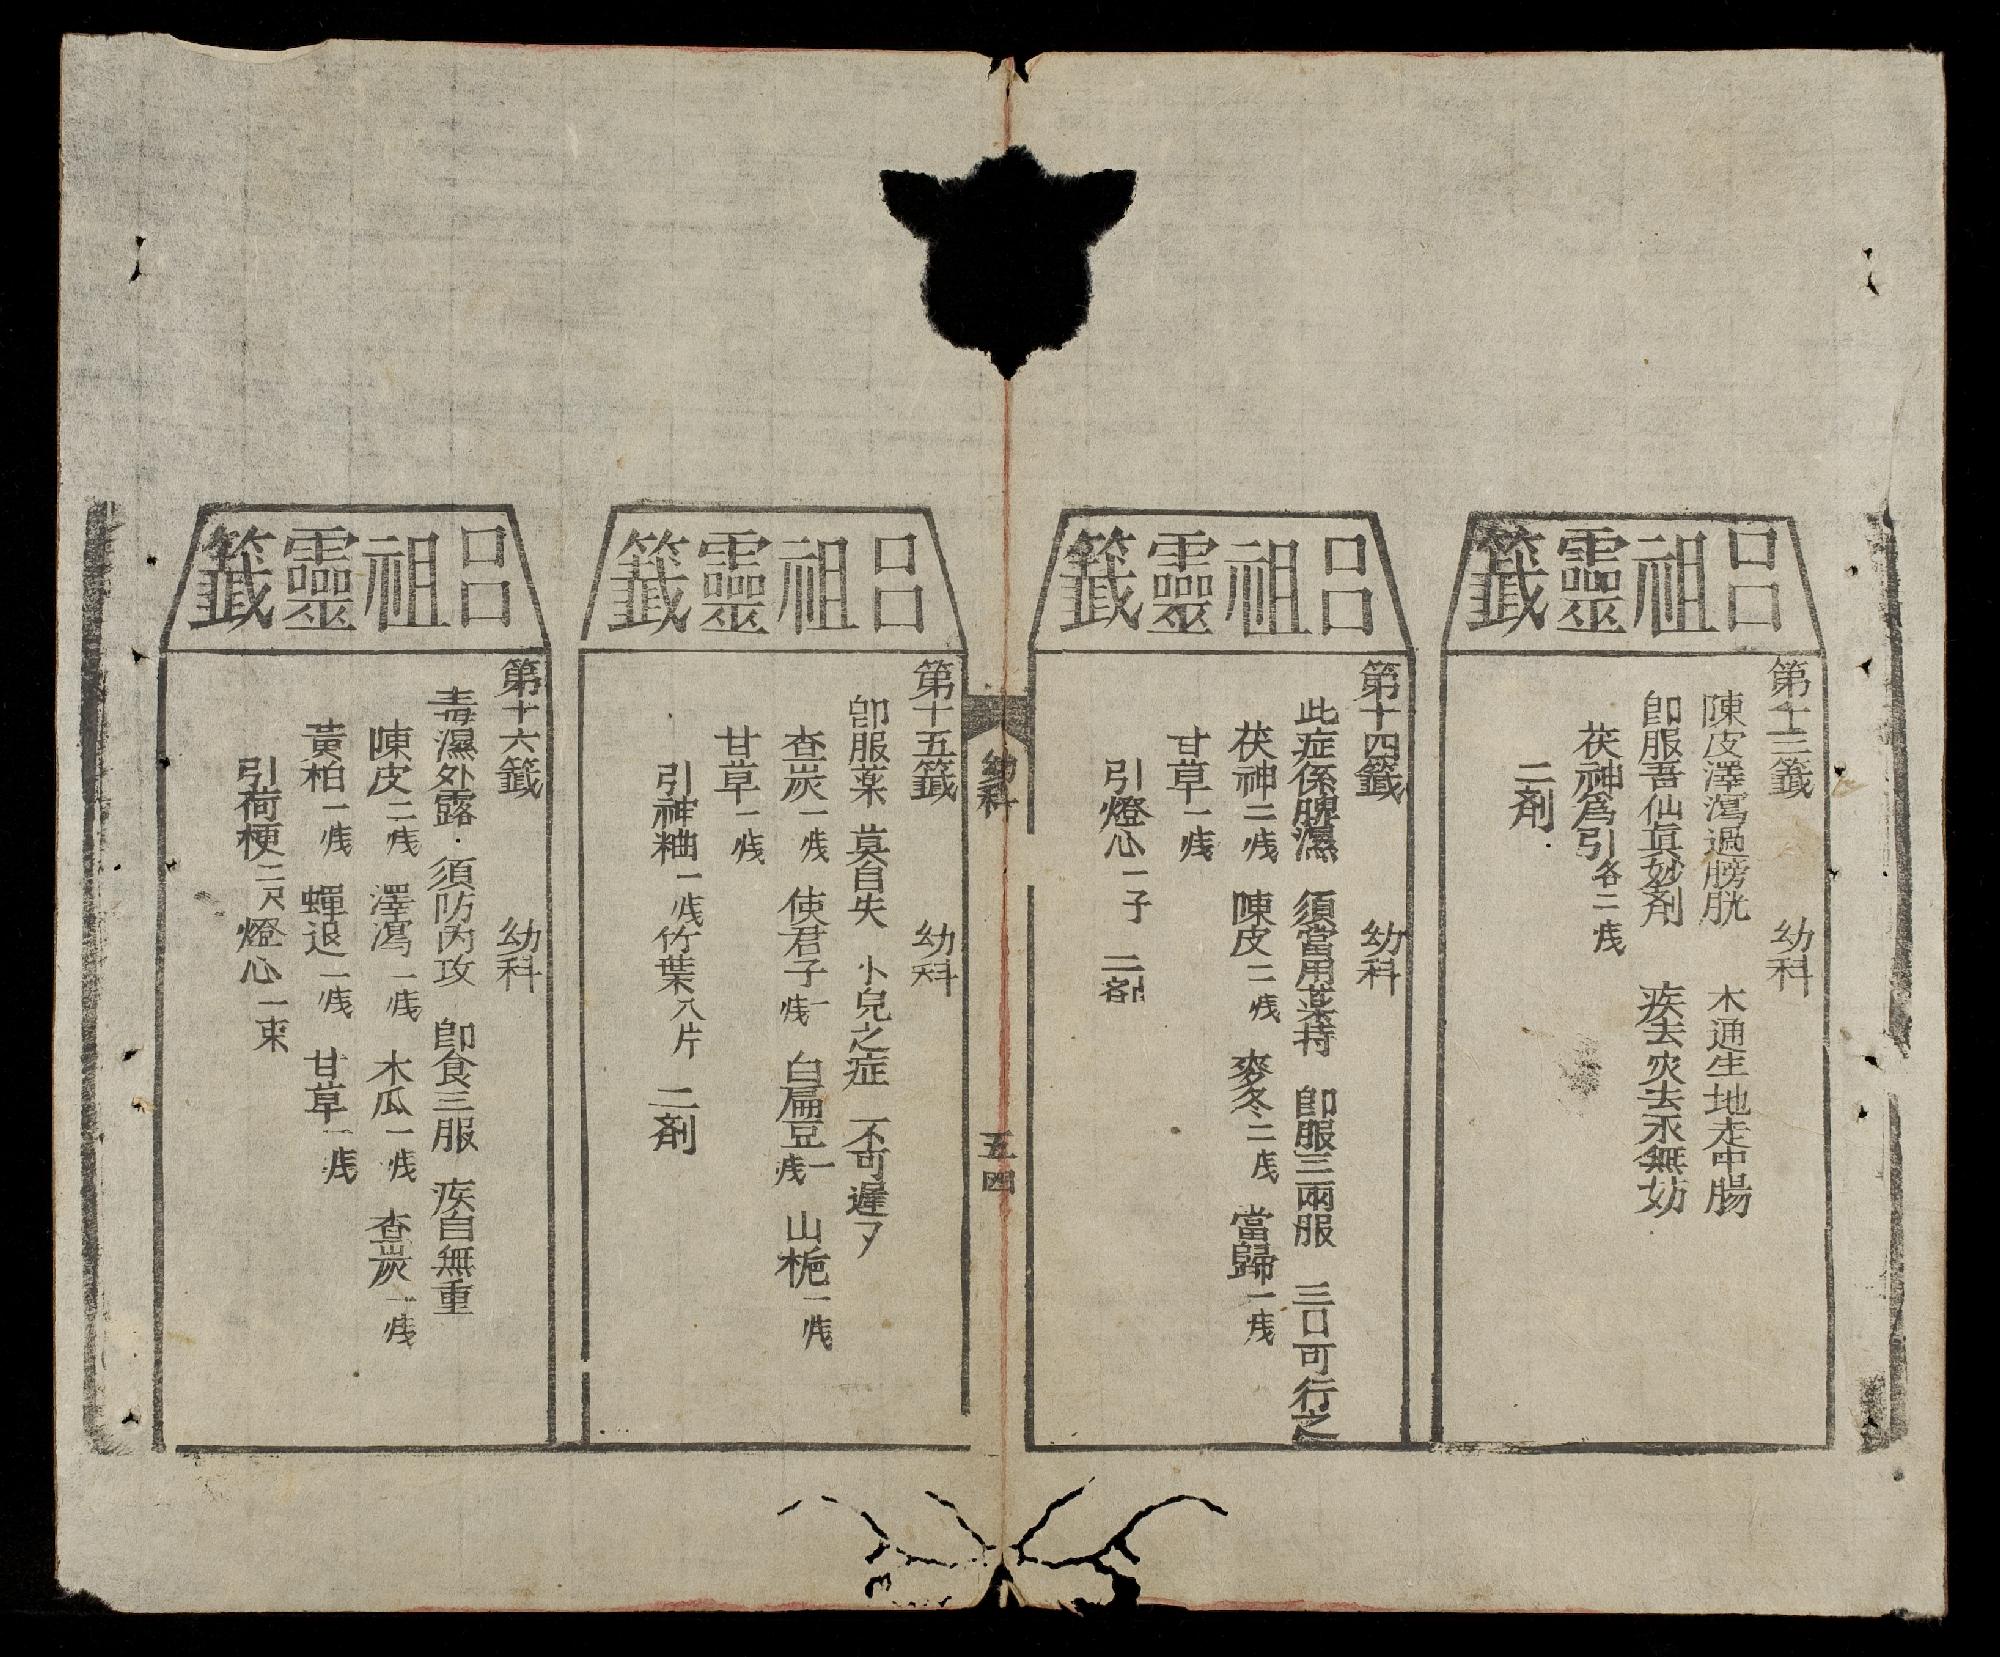 呂祖靈籤
第十三籤　幼科
陳皮澤瀉過膀胱　木通生地走中腸
卽服吾仙眞妙剤　疾去灾去永無妨
茯神爲引各二戋
二剤
呂祖靈籤
第十四籤　幼科
此症係脾濕　須當用薬持　卽服三兩服　三口可行之
茯神二戋　陳皮二戋　麥冬二戋　當歸一戋
甘草一戋
引燈心一子　二剤
幼科　五四
呂祖靈籤
第十五籤　幼科
卽服薬　莫自失　小兒之症　不可遲
查炭一戋　使君子一戋　白扁豆一戋　山栀一戋
甘草一戋
引神粬一戋竹葉八片　二剤
呂祖靈籤
第十六籤　幼科
毒濕外露　須防內攻　卽食三服　疾自無重
陳皮二戋　澤瀉一戋　木瓜一戋　查炭一戋
黃柏一戋　蟬退一戋　甘草一戋
引荷梗二尺燈心一束